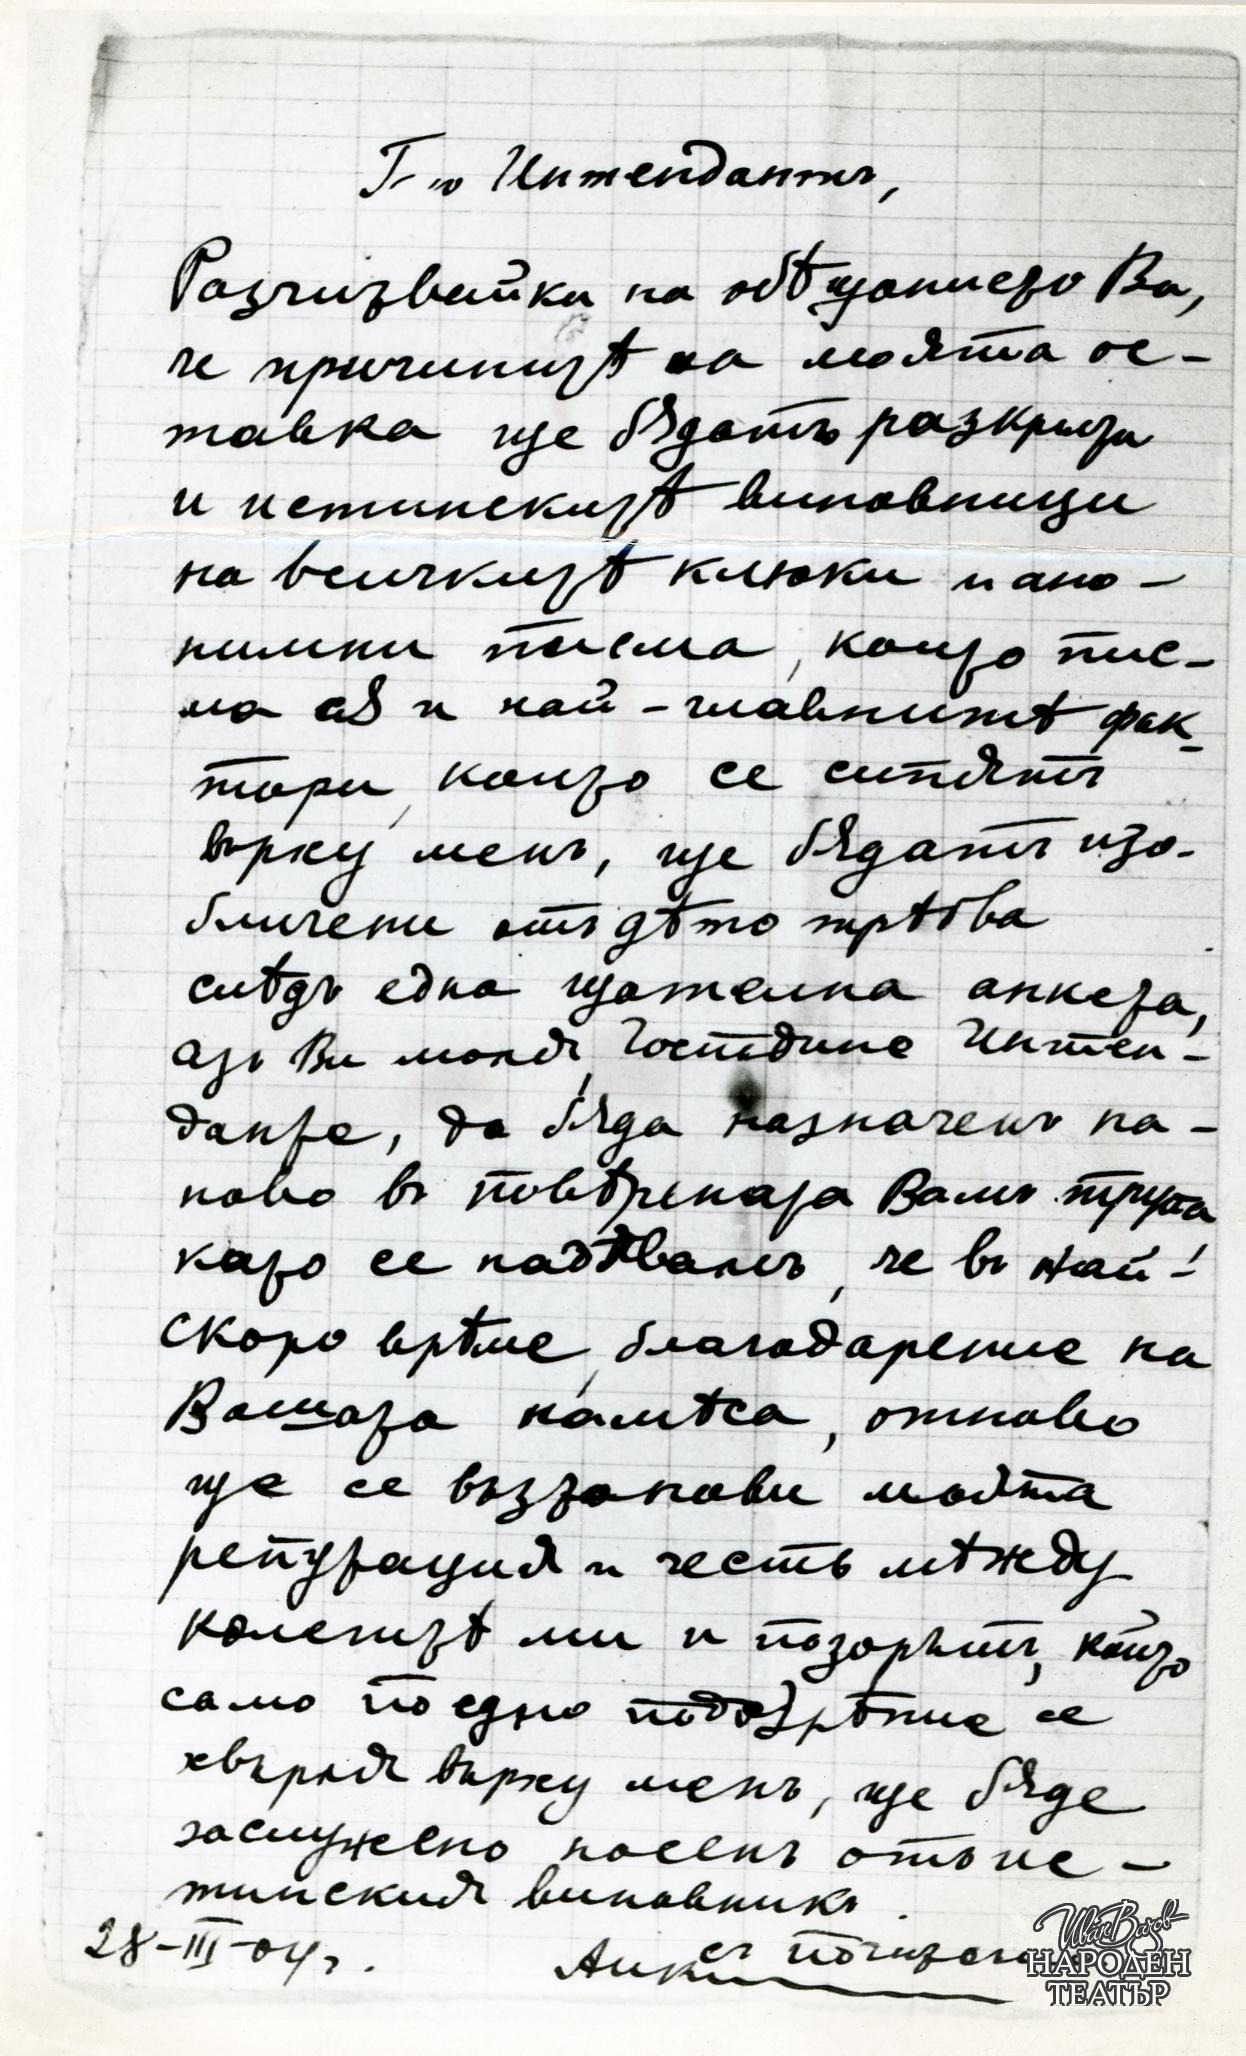 Г-н Интендантъ,
Разчитвайки на обѣщанието Ви,
че причинитѣ на моята ос-
тавка ще бѫдатъ разкрити
и истинскитѣ виновници
на всичкитѣ клюки и ано-
нимни писма, които пис-
ма сѫ и най-главнитѣ фак-
тори, които се сипятъ
върху менъ, ще бѫдатъ изо-
бличени отъ дѣто трѣбва
слѣдъ една щателна анкета,
азъ Ви моля, Господине Интен-
данте, да бѫда назначенъ на-
ново въ повѣрената Вамъ трупа
като се надѣвамъ, че въ най-
скоро врѣме, благодарение на
Вашата намѣса, отново
ще се възтанови моята
репутация и честь мѣжду
колегитѣ ми и позорътъ, който
само по едно подозрѣние се
хвърля върху менъ, ще бѫде
заслужено носенъ отъ ис-
тинския виновникъ.
28-III-04 г.
съ
Иван Вазов
НАРОДЕН
ТЕАТЪР